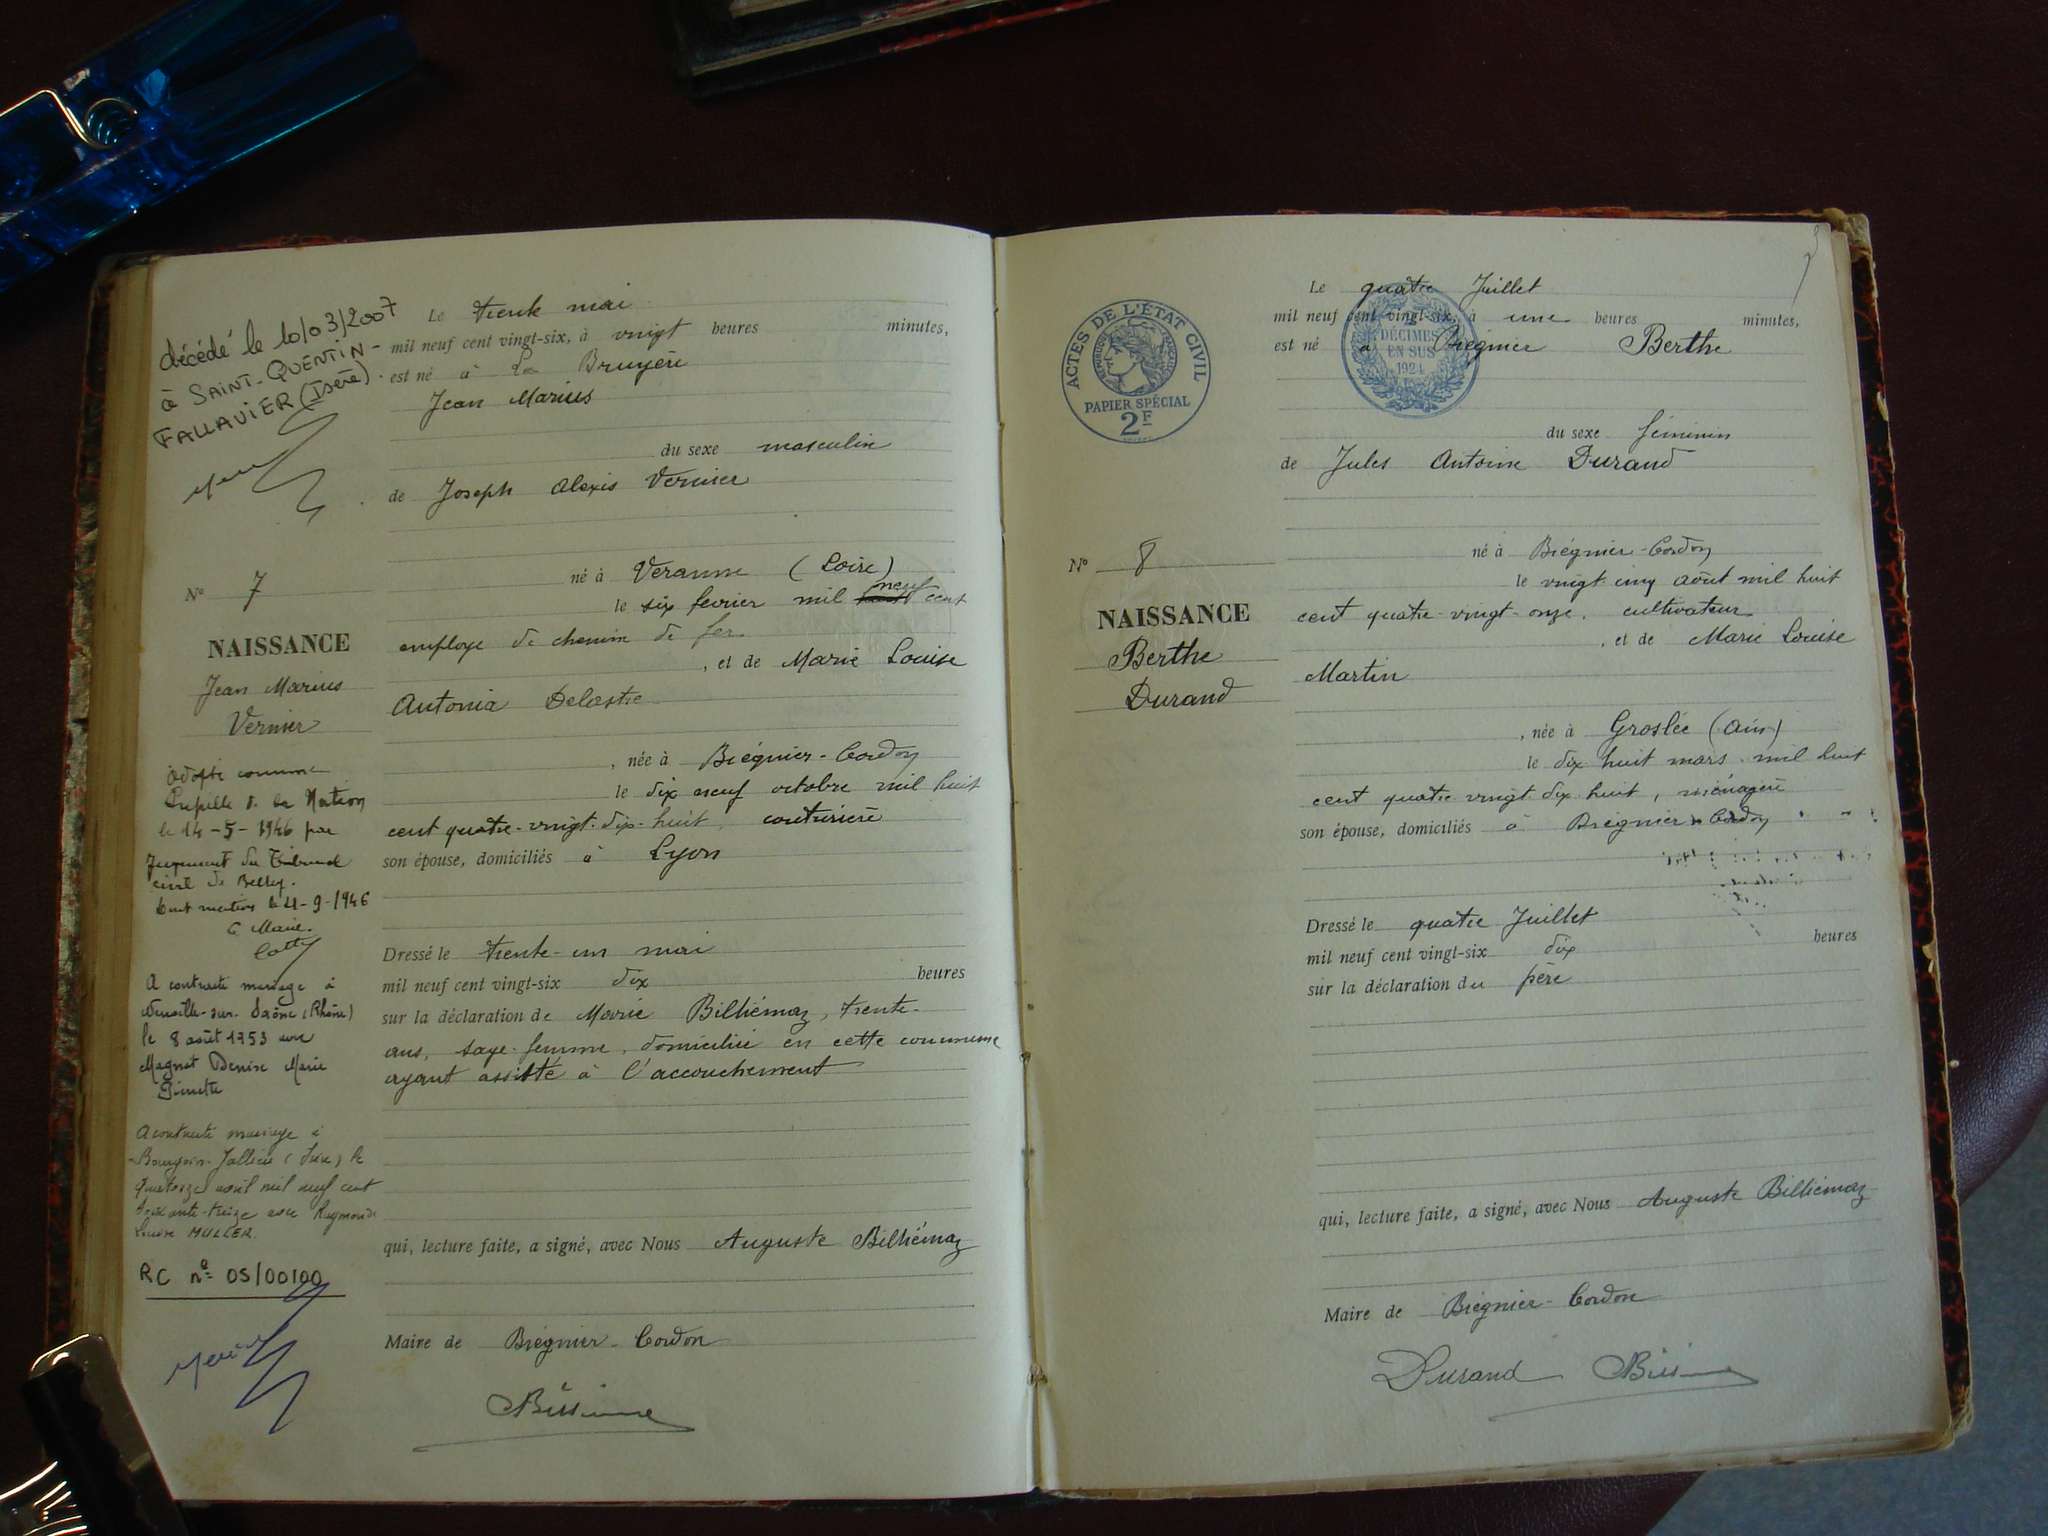 décédé le 10/03/2007
à SAINT-QUENTIN-
FALLAVIER (Isère).
Le trente mai
mil neuf cent vingt-six, à vingt heures minutes,
est né à La Bruyère
Jean Marius
du sexe masculin
de Joseph Alexis Vernier
né à Veranne (Loire)
le six fevrier mil neuf cent
employé de chemin de fer
, et de Marie Louise
Antonia Delastre
, née à Brégnier-Cordon
le dix neuf octobre mil huit
cent quatre-vingt-dix-huit, couturière
son épouse, domiciliés à Lyon
Dressé le trente-un mai
mil neuf cent vingt-six dix heures
sur la déclaration de Marie Billiémaz, trente-
ans, sage-femme, domiciliée en cette commune
ayant assisté à l'accouchement
qui, lecture faite, a signé, avec Nous Auguste Billiémaz
Maire de Brégnier-Cordon
N° 7
NAISSANCE
Jean Marius
Vernier
Adopté comme
Pupille de la Nation
le 14-5-1946 par
Jugement du Tribunal
civil de Belley.
-9-1946
Le Maire.
A contracté mariage à
Neuville-sur-Saône (Rhône)
le 8 août 1953 avec
Magnat Denise Marie
Ginette
A contracté mariage à
Bourgoin-Jallieu (Isère) le
quatorze avril mil neuf cent
soixante-treize avec Raymonde
Louise MULLER.
RC n° 05/00100
3
Le quatre Juillet
mil neuf cent vingt-six, à une heures minutes,
est né à Brégnier Berthe
du sexe féminin
de Jules Antoine Durand
né à Brégnier-Cordon
le vingt cinq août mil huit
cent quatre-vingt-onze, cultivateur
, et de Marie Louise
Martin
, née à Groslée (Ain)
le dix huit mars mil huit
cent quatre vingt dix huit, ménagère
son épouse, domiciliés à Brégnier-Cordon
Dressé le quatre Juillet
mil neuf cent vingt-six dix heures
sur la déclaration du père
qui, lecture faite, a signé, avec Nous Auguste Billiémaz
Maire de Brégnier-Cordon
Durand
ACTES DE L'ÉTAT CIVIL
PAPIER SPÉCIAL
2F
DÉCIMES
EN SUS
1924
N° 8
NAISSANCE
Berthe
Durand